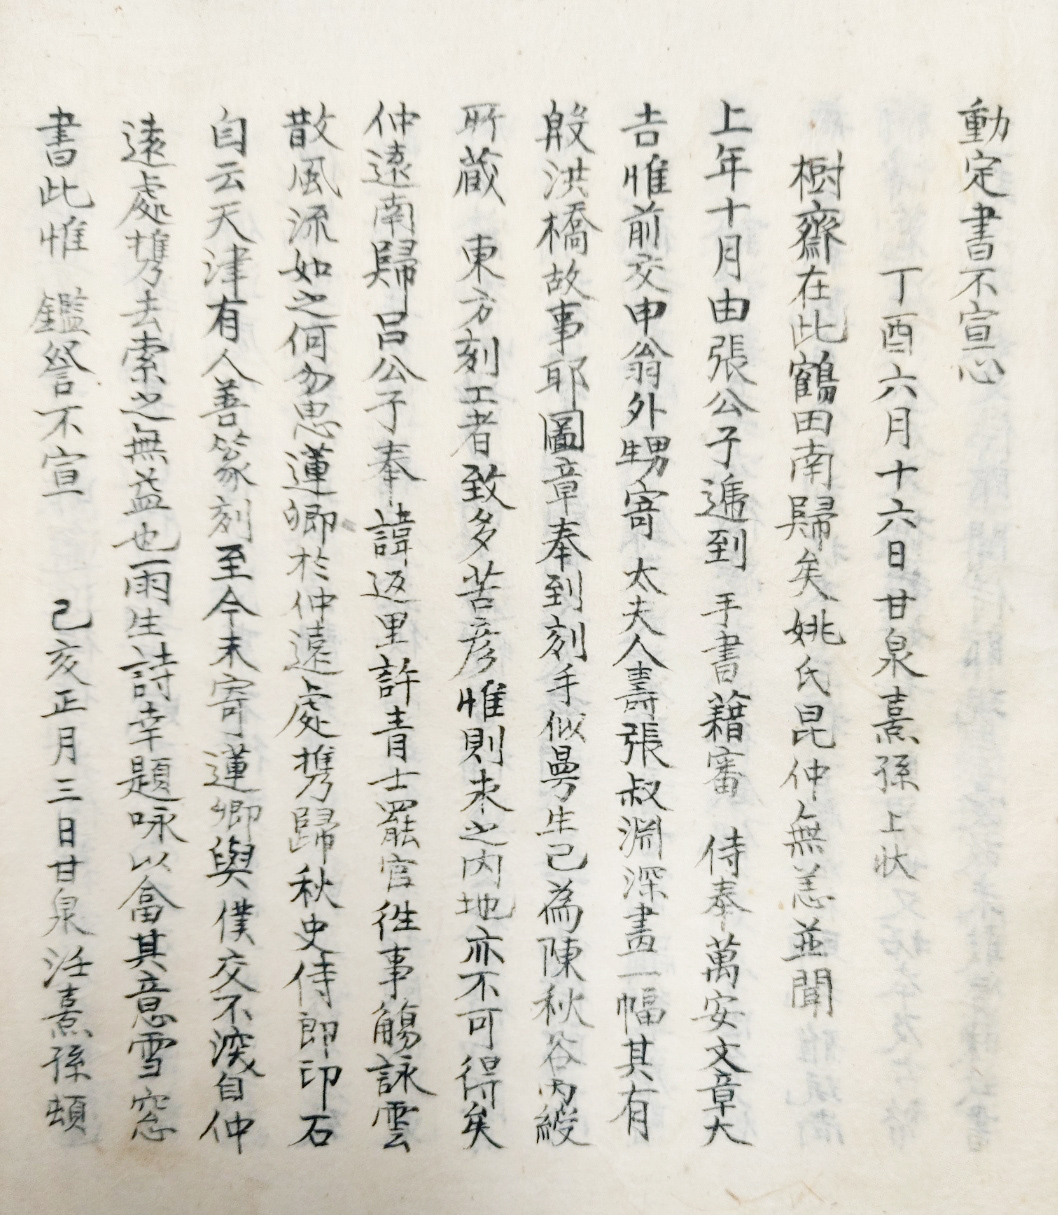 動定書不宣心
丁酉六月十六日甘泉熹孫上狀
樹齋在此鶴田南歸矣姚氏昆仲無恙並聞
上年十月由張公子遞到 手書藉審 侍奉萬安文章大
吉惟前交申翁外甥寄太夫人壽張叔淵深畫一幅其有
殷洪橋故事耶圖章奉到刻手似曼生己為陳秋谷丙綬
所蔵 東方刻工者致多苦彦惟則未之内地亦不可得矣
仲遠南歸呂公子奉諱返里許青士罷官徃事觴詠雲
散風流如之何勿思蓮卿於仲遠處攜歸秋史侍郎印石
自云天津有人善篆刻至今未寄蓮卿與僕交不深自仲
遠處攜去索之無益也雨生詩幸題咏以畣其意雪窓
書此惟 鑑詧不宣 己亥正月三日甘泉汪熹孫頓